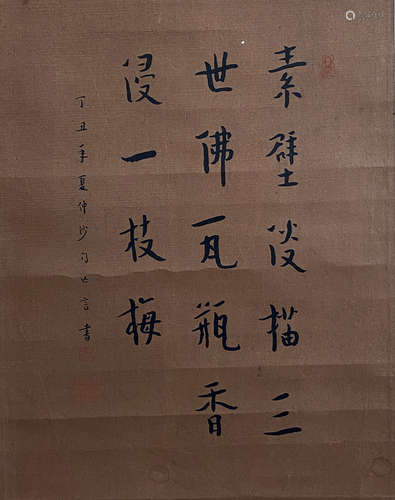 素壁淡描三
世佛瓦瓶香
浸一枝梅
丁丑年夏仲沙門弘言書